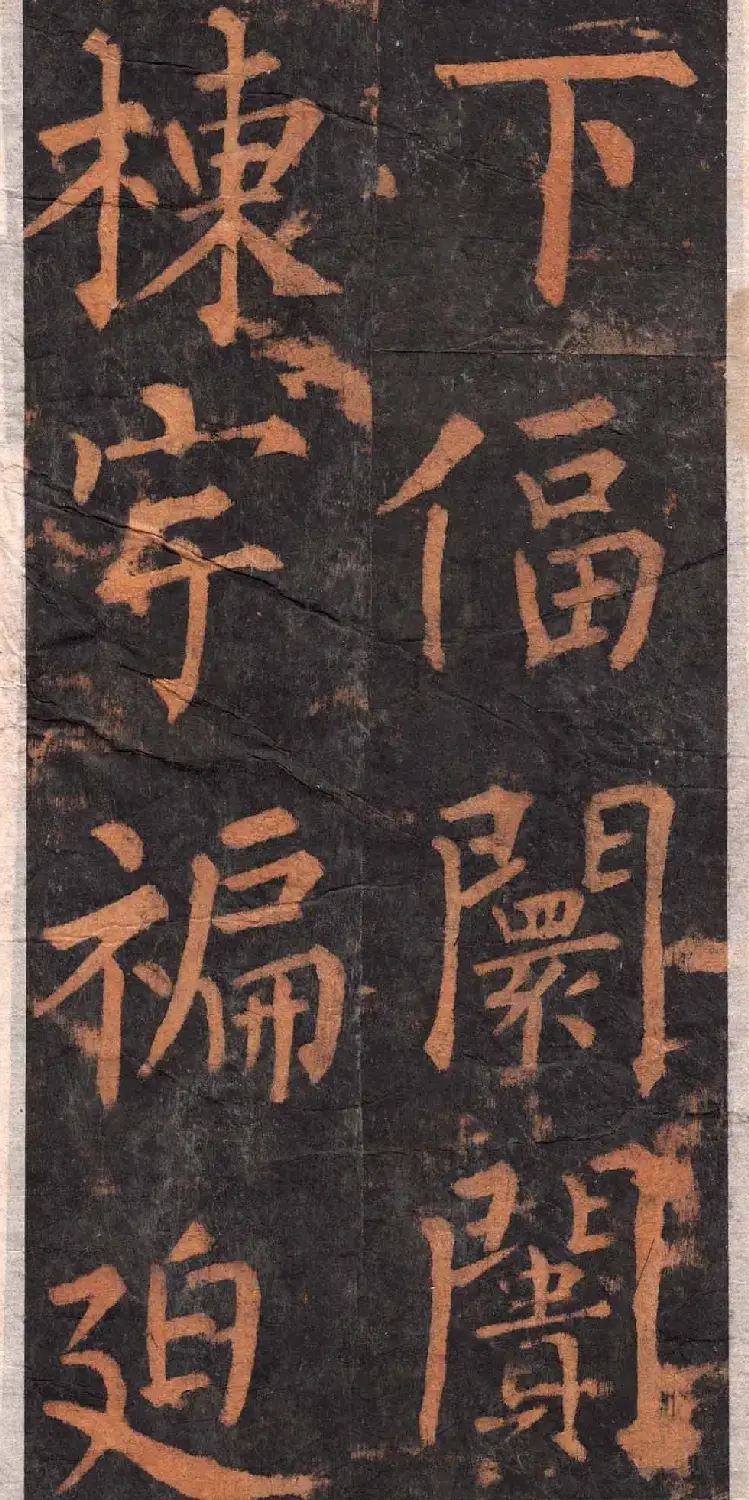 下偪闤闠
棟宇褊廹